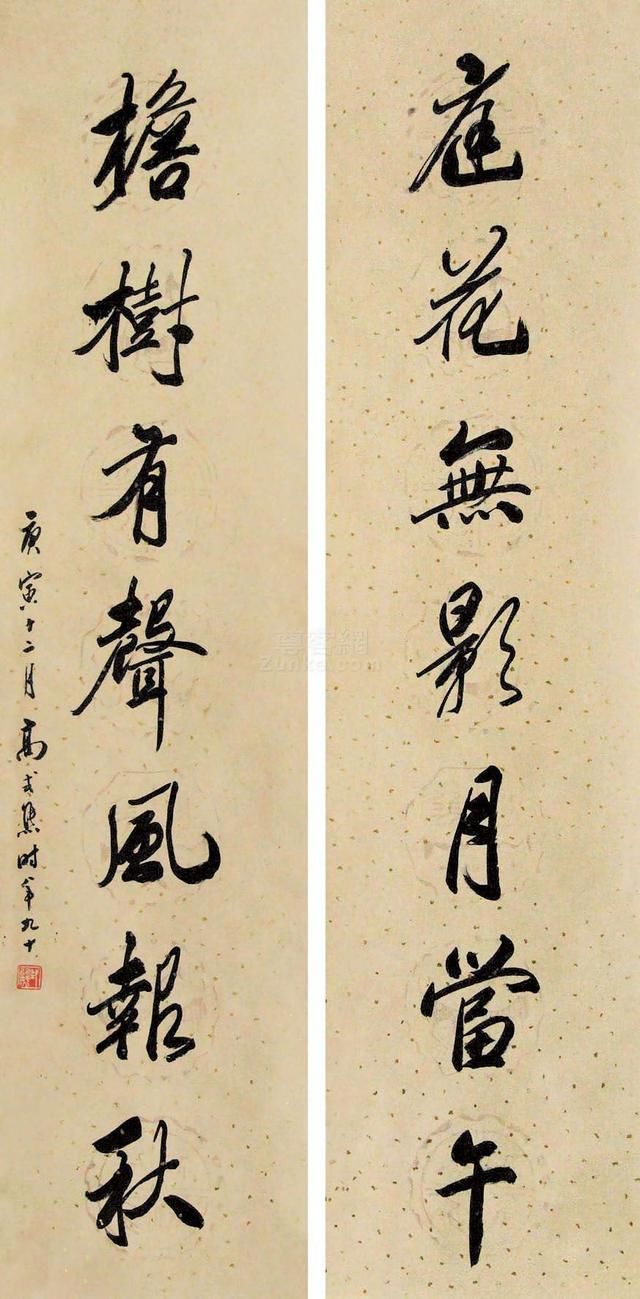 庭花無影月當午
檐樹有聲風報秋
庚寅十二月高式熊时年九十
尊客網
Zunke.com